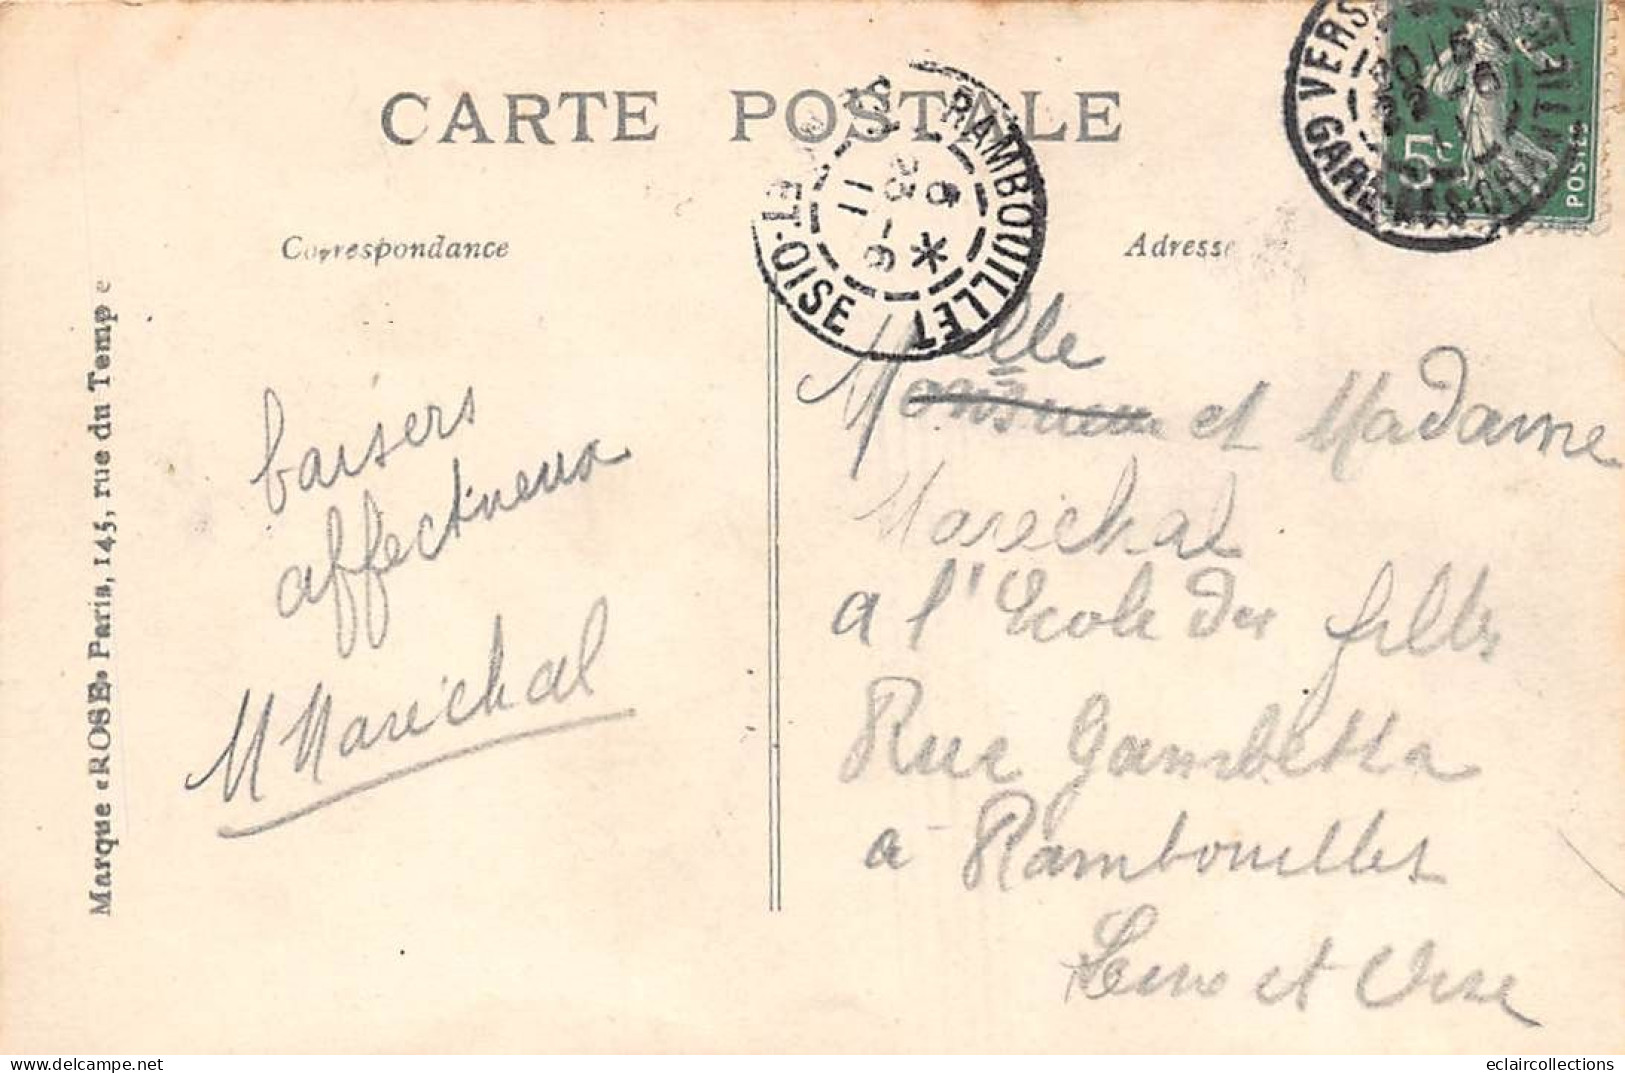 CARTE POSTALE
Correspondance
Adresse
RAMBOUILLET
ET-OISE
9-6
28
11
*
VERS
GARE DES CHANTIE
5c
POSTES
Marque «ROSE» Paris, 145, rue du Temp e
baisers
affectueux
M Maréchal
Melle
Monsieur et Madame
Maréchal
a l'Ecole des filles
Rue Gambetta
a Rambouillet
Seine et Oise
eclaircollections